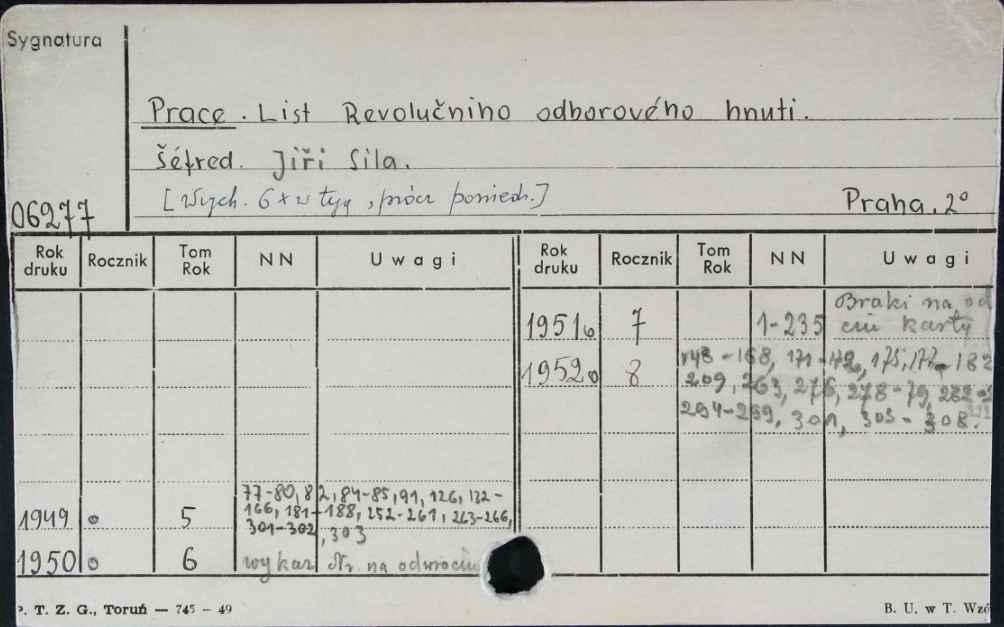 Sygnatura
Prace. List Revolučniho odborového hnuti.
Šéfred. Jiři Sila.
[Wych. 6 x w tyg, prócz poniedz.]
06277
Praha, 2°
Rok druku Rocznik Tom Rok NN Uwagi Rok druku Rocznik Tom Rok NN Uwagi
1951o 7 1-235 Braki na od
kart​y
1952o 8 148-168, 171-172, 175, 177-182
209, 263, 276, 278-79, 282-
294-299, 301, 303-308.
1949 o 5 77-80, 82, 84-85, 91, 126, 132-
166, 181-188, 252-261, 263-266,
301-302, 303
1950 o 6 wykaz Nr. na odwrociu
P. T. Z. G., Toruń — 745 — 49
B. U. w T. Wzó